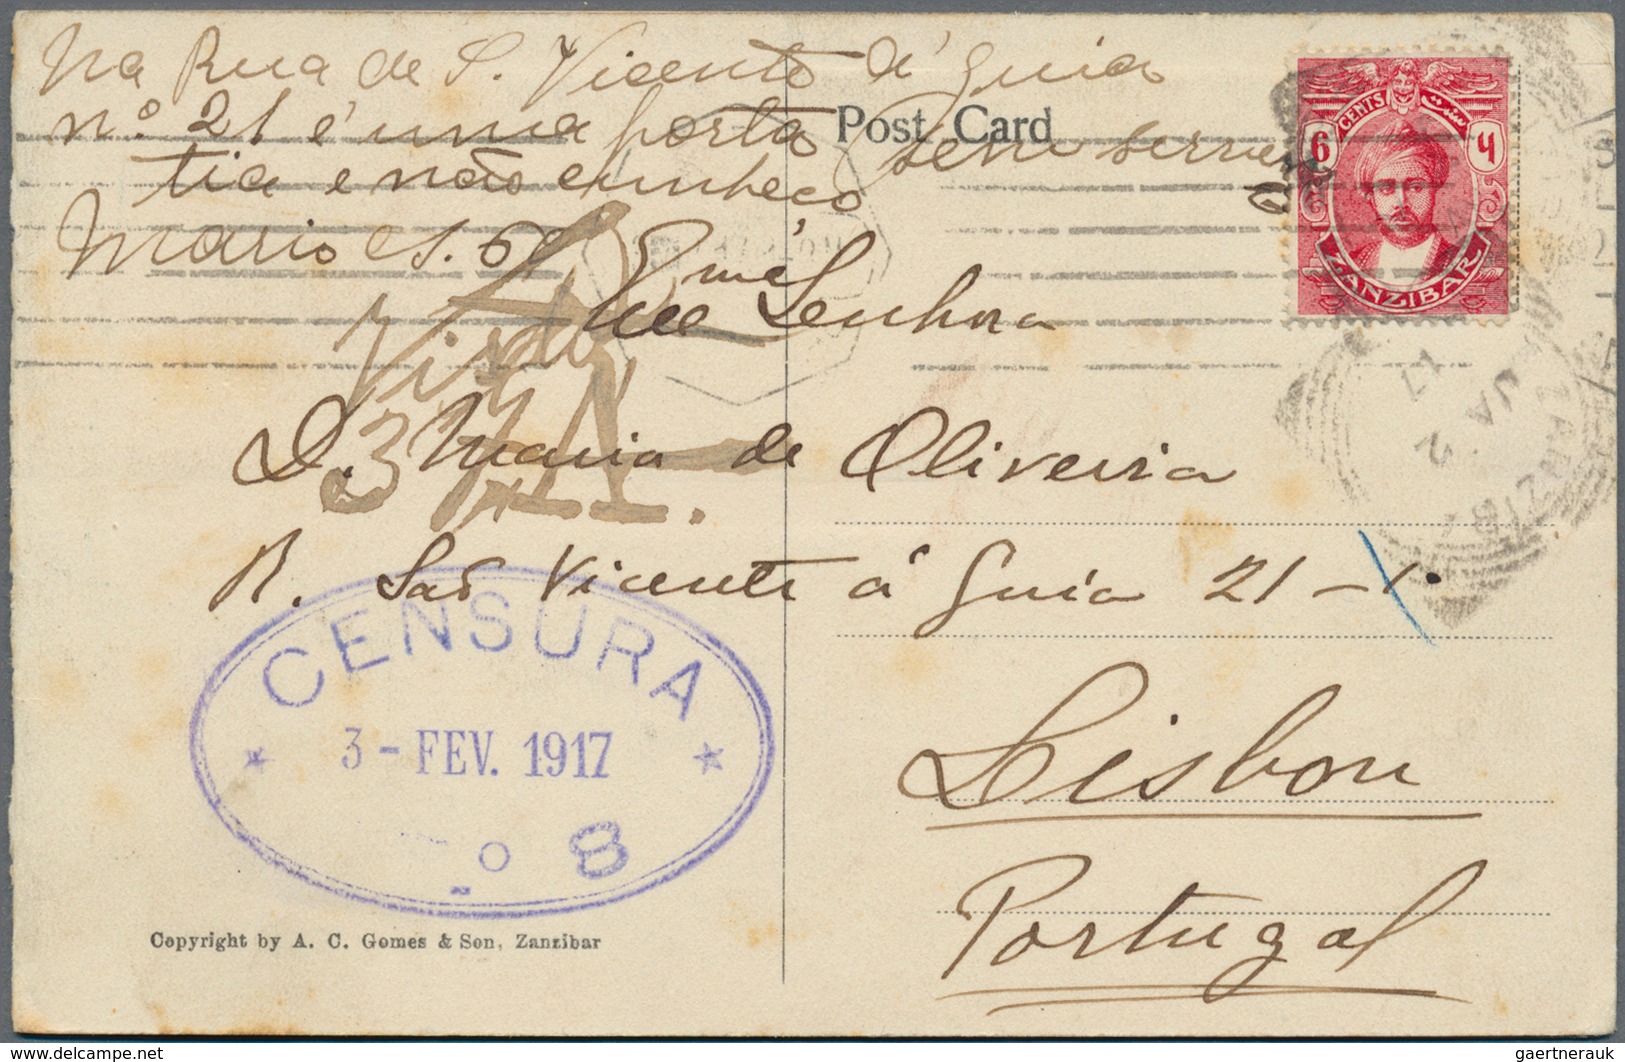 Na Rua de S. Vicente á Guia
nº 21 é uma porta sem
tia e não conheço
Mario
Post Card
6 CENTS
ZANZIBAR
Exmª Senhora
Visto
D. Maria de Oliveira
R. São Vicente á Guia 21-1º
CENSURA
3 - FEV. 1917
8
Lisbon
Portugal
ZANZIB
2
JA
17
Copyright by A. C. Gomes & Son, Zanzibar
www.delcampe.net
gaertnerauk